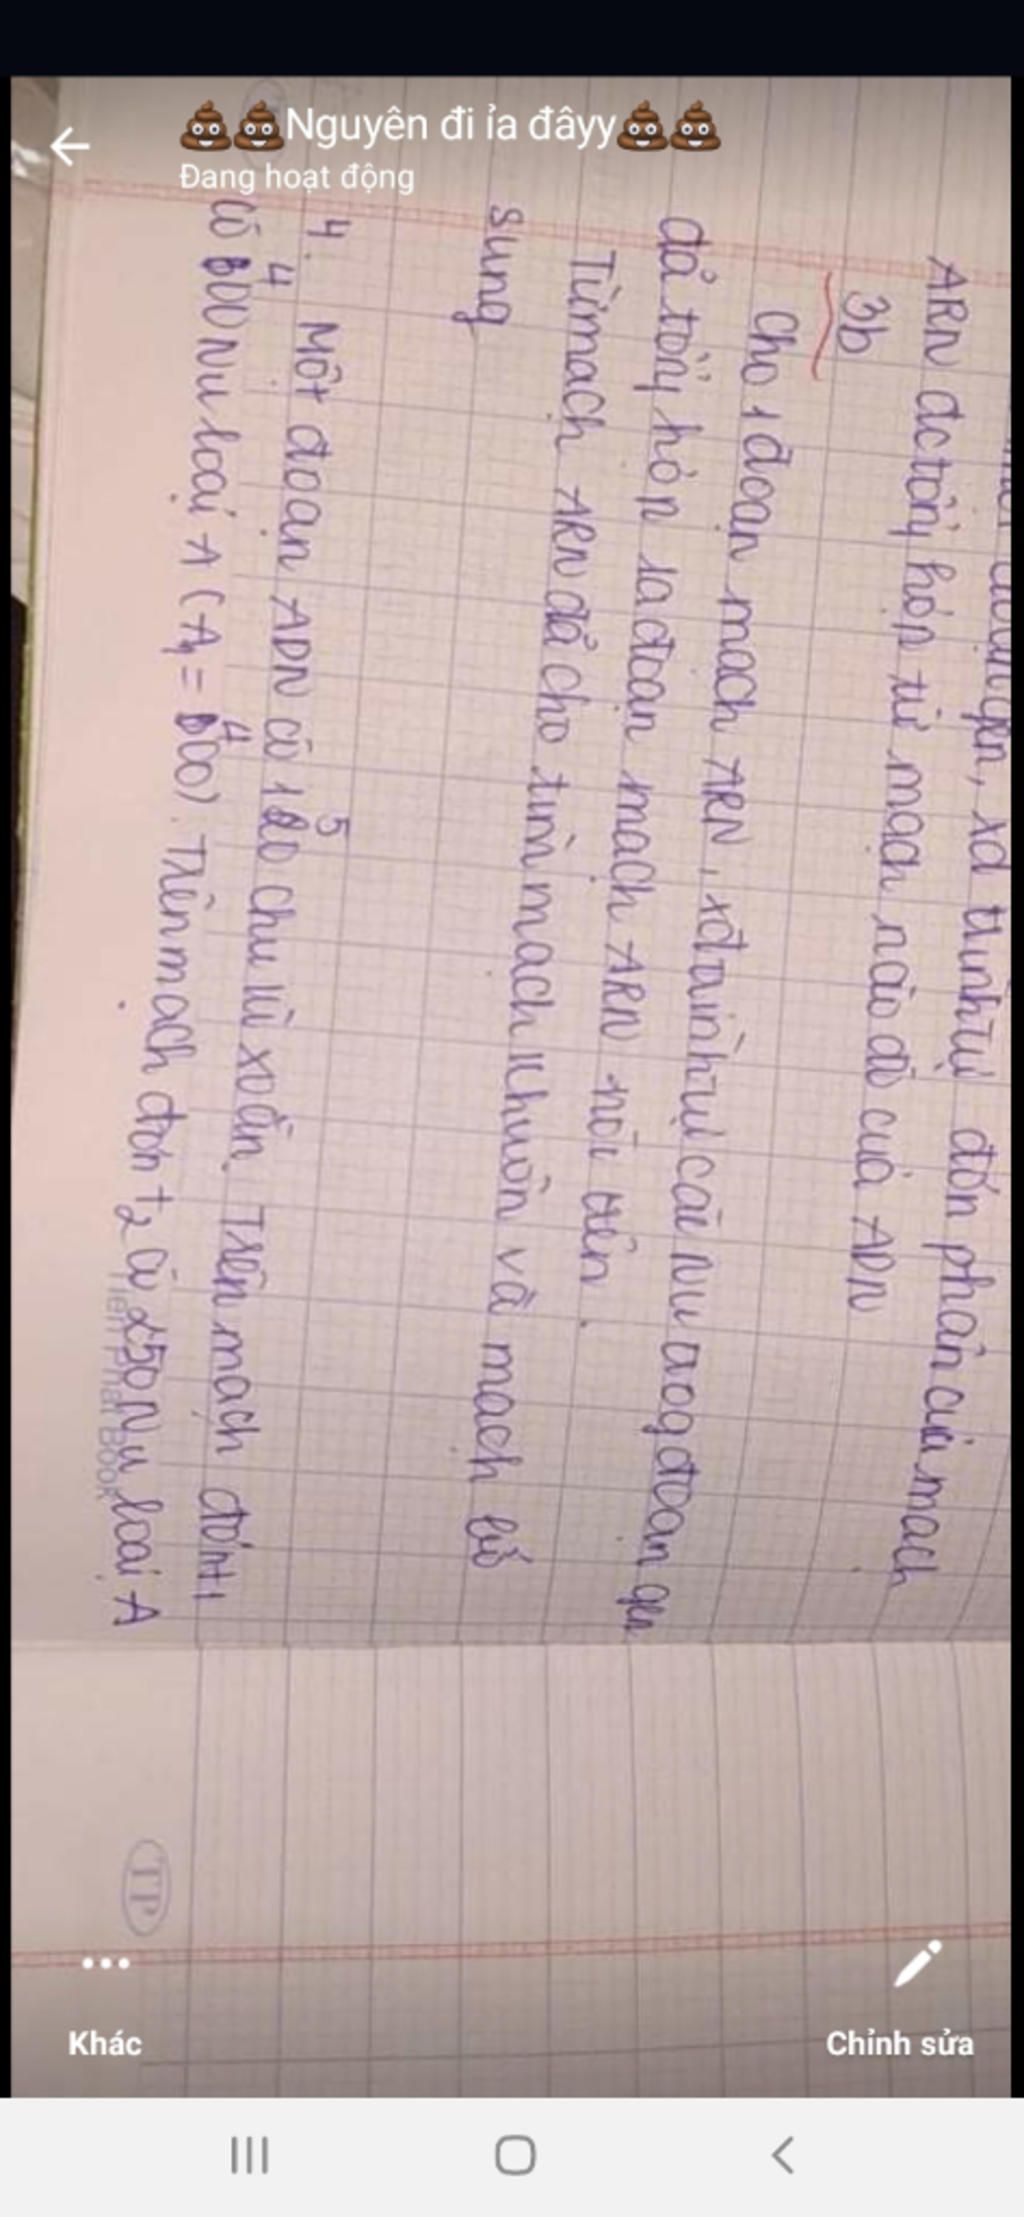 💩💩Nguyên đi ỉa đâyy💩💩
Đang hoạt động
ARN đc tổng hợp từ mạch nào đó của ADN
3b
Cho 1 đoạn mạch ARN, xđ trình tự các Nu trog đoạn gen
đã tổng hợp ra đoạn mạch ARN nói trên.
Từ mạch ARN đã cho tìm mạch khuôn và mạch bổ
sung
4. Một đoạn ADN có 150 chu kì xoắn. Trên mạch đơn 1
có 400 Nu loại A (A1 = 400). Trên mạch đơn t2 có 250 Nu loại A
Tiến Phát Book
TP
Khác
Chỉnh sửa